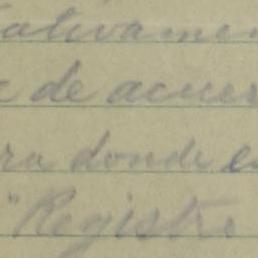 ativamen
de acuer
ra donde e
"Registr